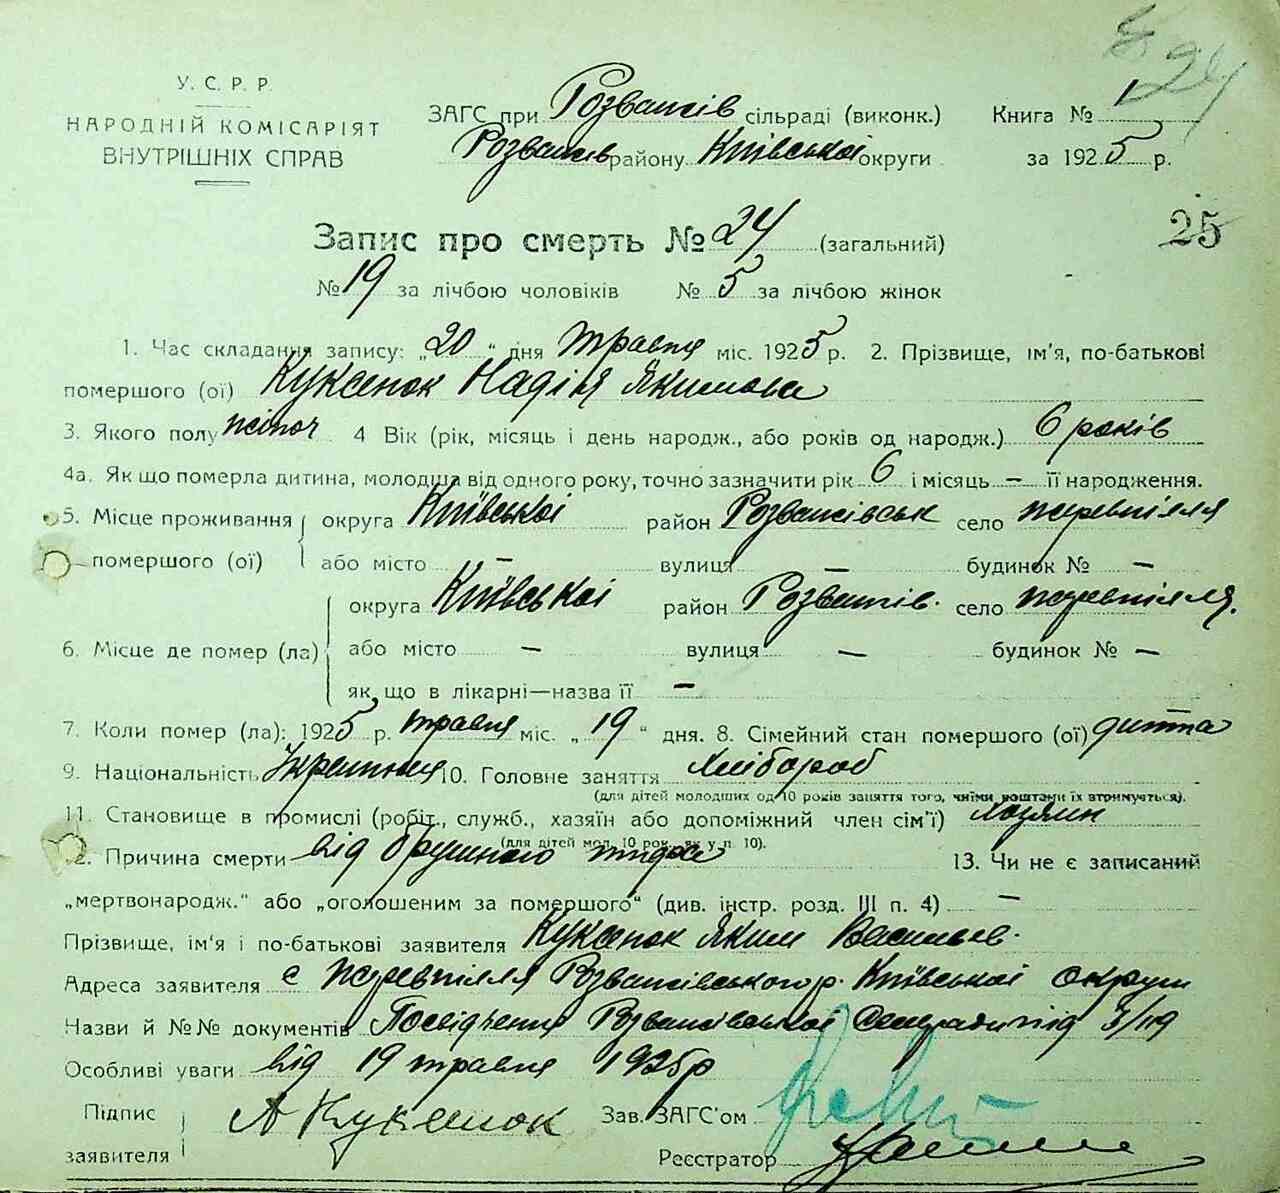 24
У. С. Р. Р.
НАРОДНІЙ КОМІСАРІЯТ
ВНУТРІШНІХ СПРАВ
ЗАГС при Розважів сільраді (виконк.) Книга № 1
Розважів району Київської округи за 1925 р.
25
Запис про смерть № 24 (загальний)
№ 19 за лічбою чоловіків № 5 за лічбою жінок
1. Час складання запису: „20“ дня травня міс. 1925 р. 2. Прізвище, ім'я, по-батькові
помершого (ої) Куксенок Надія Якимова
3. Якого полу жіноч 4 Вік (рік, місяць і день народж., або років од народж.) 6 років
4а. Як що померла дитина, молодша від одного року, точно зазначити рік 6 і місяць — її народження.
5. Місце проживання помершого (ої) округа Київської район Розважівськ село
або місто — вулиця — будинок № —
6. Місце де помер (ла) округа Київської район Розважів. село
або місто — вулиця — будинок № —
як що в лікарні—назва її —
7. Коли помер (ла): 1925 р. травня міс. „19“ дня. 8. Сімейний стан помершого (ої) дитина
9. Національність 10. Головне заняття Хлібороб
(для дітей молодших од 10 років заняття того, чиїми коштами їх втримується).
11. Становище в промислі (робіт., служб., хазяїн або допоміжний член сім'ї) Хозяин
(для дітей мол. 10 рок. як у п. 10).
12. Причина смерти від брушного тифа 13. Чи не є записаний
„мертвонародж.“ або „оголошеним за помершого“ (див. інстр. розд. III п. 4) —
Прізвище, ім'я і по-батькові заявителя Куксенок Яким Васильев.
Адреса заявителя с Розважівського р. Київської округи
Назви й №№ документів Посвідчення Розважівської від
Особливі уваги від 19 травня 1925 р
Підпис заявителя А Куксенок Зав. ЗАГС'ом
Реєстратор